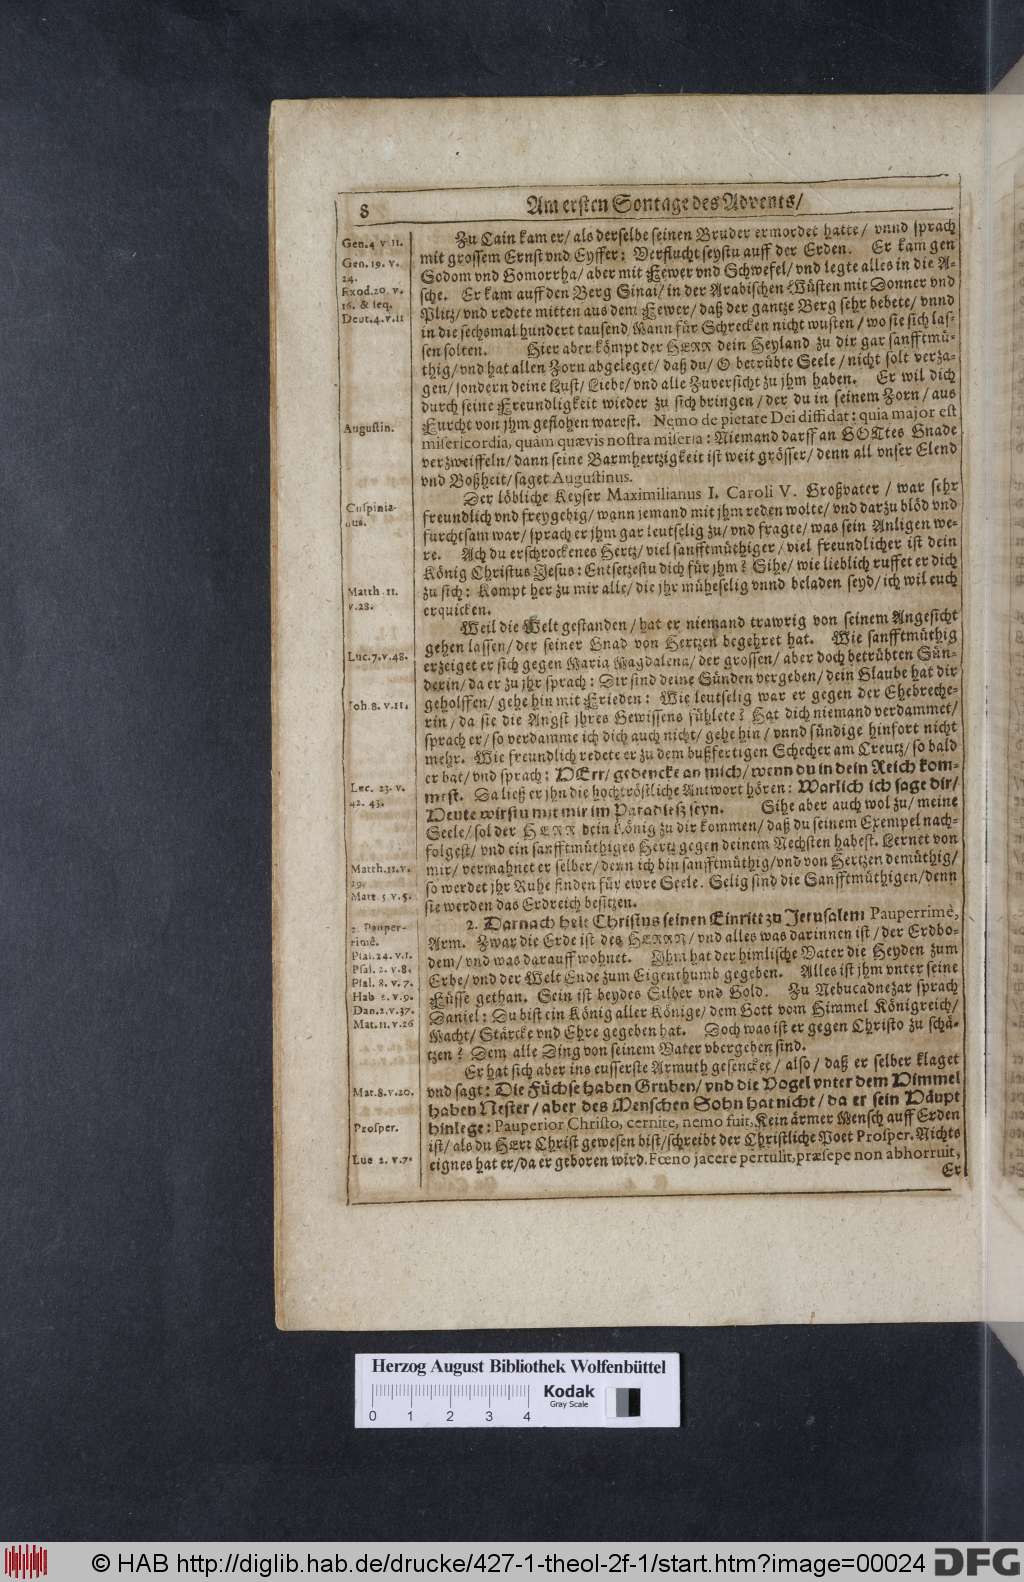 8
Am ersten Sontage des Advents/
Gen. 4 v 11.
Gen. 19. v.
24.
Exod. 20. v.
16. & seq.
Deut. 4. v. 11
Zu Cain kam er/ als derselbe seinen Bruder ermordet hatte/ vnnd sprach
mit grossem Ernst vnd Eyffer: Verflucht seystu auff der Erden. Er kam gen
Sodom vnd Gomorrha/ aber mit Fewer vnd Schwefel/ vnd legte alles in die A-
sche. Er kam auff den Berg Sinai/ in der Arabischen Wüsten mit Donner vnd
Plitz/ vnd redete mitten aus dem Fewer/ daß der gantze Berg sehr bebete/ vnnd
in die sechsmal hundert tausend Mann für Schrecken nicht wusten/ wo sie sich las-
sen solten. Hier aber kömpt der HERR dein Heyland zu dir gar sanfftmü-
thig/ vnd hat allen Zorn abgeleget/ daß du/ O betrübte Seele/ nicht solt verza-
gen/ sondern deine Lust/ Liebe/ vnd alle Zuversicht zu jhm haben. Er wil dich
durch seine Freundligkeit wieder zu sich bringen/ der du in seinem Zorn/ aus
Augustin.
Furcht von jhm geflohen warest. Nemo de pietate Dei diffidat: quia major est
misericordia, quàm quævis nostra miseria: Niemand darff an GOTtes Gnade
verzweiffeln/ dann seine Barmhertzigkeit ist weit grösser/ denn all vnser Elend
vnd Boßheit/ saget Augustinus.
Cuspinia-
nus.
Der löbliche Keyser Maximilianus I. Caroli V. Großvater/ war sehr
freundlich vnd freygebig/ wann jemand mit jhm reden wolte/ vnd darzu blöd vnd
furchtsam war/ sprach er jhm gar leutselig zu/ vnd fragte/ was sein Anligen we-
re. Ach du erschrockenes Hertz/ viel sanfftmüthiger/ viel freundlicher ist dein
König Christus Jesus: Entsetzestu dich für jhm? Sihe/ wie lieblich ruffet er dich
Matth. 11.
v. 28.
zu sich: Kompt her zu mir alle/ die jhr müheselig vnnd beladen seyd/ ich wil euch
erquicken.
Weil die Welt gestanden/ hat er niemand trawrig von seinem Angesicht
gehen lassen/ der seiner Gnad von Hertzen begehret hat. Wie sanfftmüthig
Luc. 7. v. 48.
erzeiget er sich gegen Maria Magdalena/ der grossen/ aber doch betrübten Sün-
derin/ da er zu jhr sprach: Dir sind deine Sünden vergeben/ dein Glaube hat dir
Joh. 8. v. 11.
geholffen/ gehe hin mit Frieden: Wie leutselig war er gegen der Ehebreche-
rin/ da sie die Angst jhres Gewissens fühlete? Hat dich niemand verdammet/
sprach er/ so verdamme ich dich auch nicht/ gehe hin/ vnnd sündige hinfort nicht
mehr. Wie freundlich redete er zu dem bußfertigen Schecher am Creutz/ so bald
Luc. 23. v.
42. 43.
er bat/ vnd sprach: HErr/ gedencke an mich/ wenn du in dein Reich kom-
mest. Da ließ er jhn die hochtröstliche Antwort hören: Warlich ich sage dir/
Heute wirstu mit mir im Paradieß seyn. Sihe aber auch wol zu/ meine
Seele/ sol der HERR dein König zu dir kommen/ daß du seinem Exempel nach-
folgest/ vnd ein sanfftmüthiges Hertz gegen deinem Nechsten habest. Lernet von
Matth. 11. v.
29.
Matt. 5 v. 5.
mir/ vermahnet er selber/ denn ich bin sanfftmüthig/ vnd von Hertzen demüthig/
so werdet jhr Ruhe finden für ewre Seele. Selig sind die Sanfftmüthigen/ denn
sie werden das Erdreich besitzen.
2. Pauper-
rimè.
Psal. 24. v. 1.
Psal. 2. v. 8.
Psal. 8. v. 7.
Hab. 2. v. 9.
Dan. 2. v. 37.
Mat. 11. v. 26
2. Darnach helt Christus seinen Einritt zu Jerusalem Pauperrimè,
Arm. Zwar die Erde ist des HERRN/ vnd alles was darinnen ist/ der Erdbo-
dem/ vnd was darauff wohnet. Jhm hat der himlische Vater die Heyden zum
Erbe/ vnd der Welt Ende zum Eigenthumb gegeben. Alles ist jhm vnter seine
Füsse gethan. Sein ist beydes Silber vnd Gold. Zu Nebucadnezar sprach
Daniel: Du bist ein König aller Könige/ dem Gott vom Himmel Königreich/
Macht/ Stärcke vnd Ehre gegeben hat. Doch was ist er gegen Christo zu schä-
tzen? Dem alle Ding von seinem Vater vbergeben sind.
Er hat sich aber ins eusserste Armuth gesencket/ also/ daß er selber klaget
Mat. 8. v. 20.
vnd sagt: Die Füchse haben Gruben/ vnd die Vogel vnter dem Himmel
haben Nester/ aber des Menschen Sohn hat nicht/ da er sein Häupt
Prosper.
hinlege: Pauperior Christo, cernite, nemo fuit, Kein ärmer Mensch auff Erden
ist/ als du HErr Christ gewesen bist/ schreibt der Christliche Poet Prosper. Nichts
Luc 2. v. 7.
eignes hat er/ da er geboren wird. Fœno jacere pertulit, præsepe non abhorruit,
Er
Herzog August Bibliothek Wolfenbüttel
Kodak
Gray Scale
0 1 2 3 4
© HAB http://diglib.hab.de/drucke/427-1-theol-2f-1/start.htm?image=00024
DFG